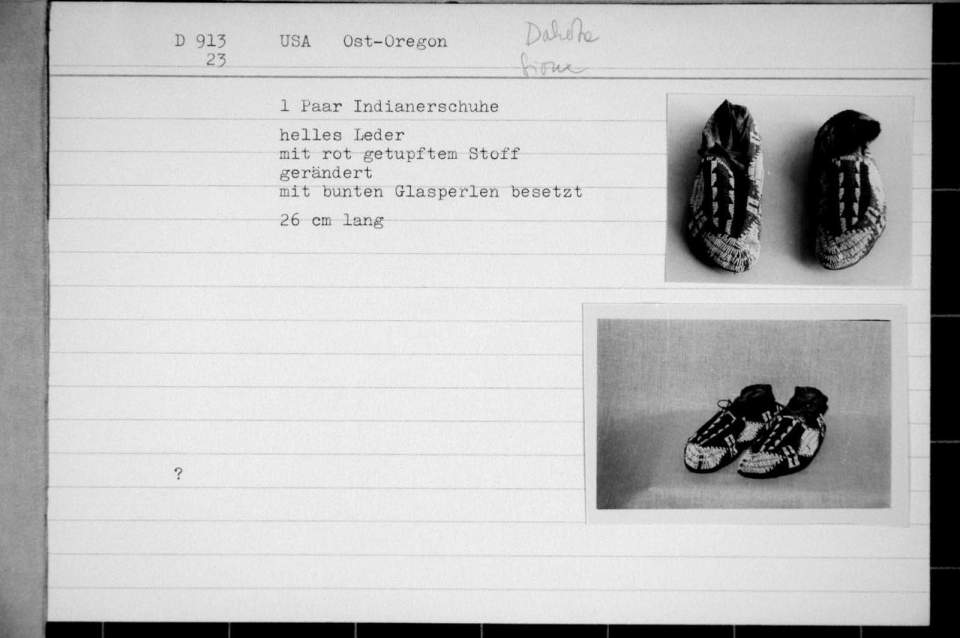 D 913 USA Ost-Oregon Dakota
23 Sioux
1 Paar Indianerschuhe
helles Leder
mit rot getupftem Stoff
gerändert
mit bunten Glasperlen besetzt
26 cm lang
?